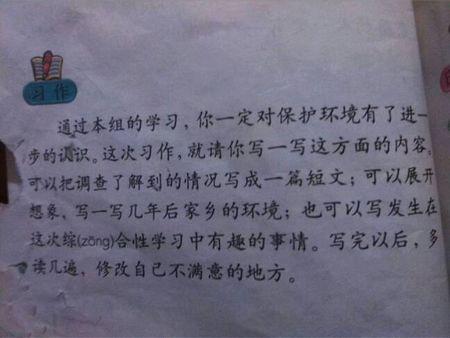 习作
通过本组的学习，你一定对保护环境有了进一
步的认识。这次习作，就请你写一写这方面的内容。
可以把调查了解到的情况写成一篇短文；可以展开
想象，写一写几年后家乡的环境；也可以写发生在
这次综(zōng)合性学习中有趣的事情。写完以后，多
读几遍，修改自己不满意的地方。